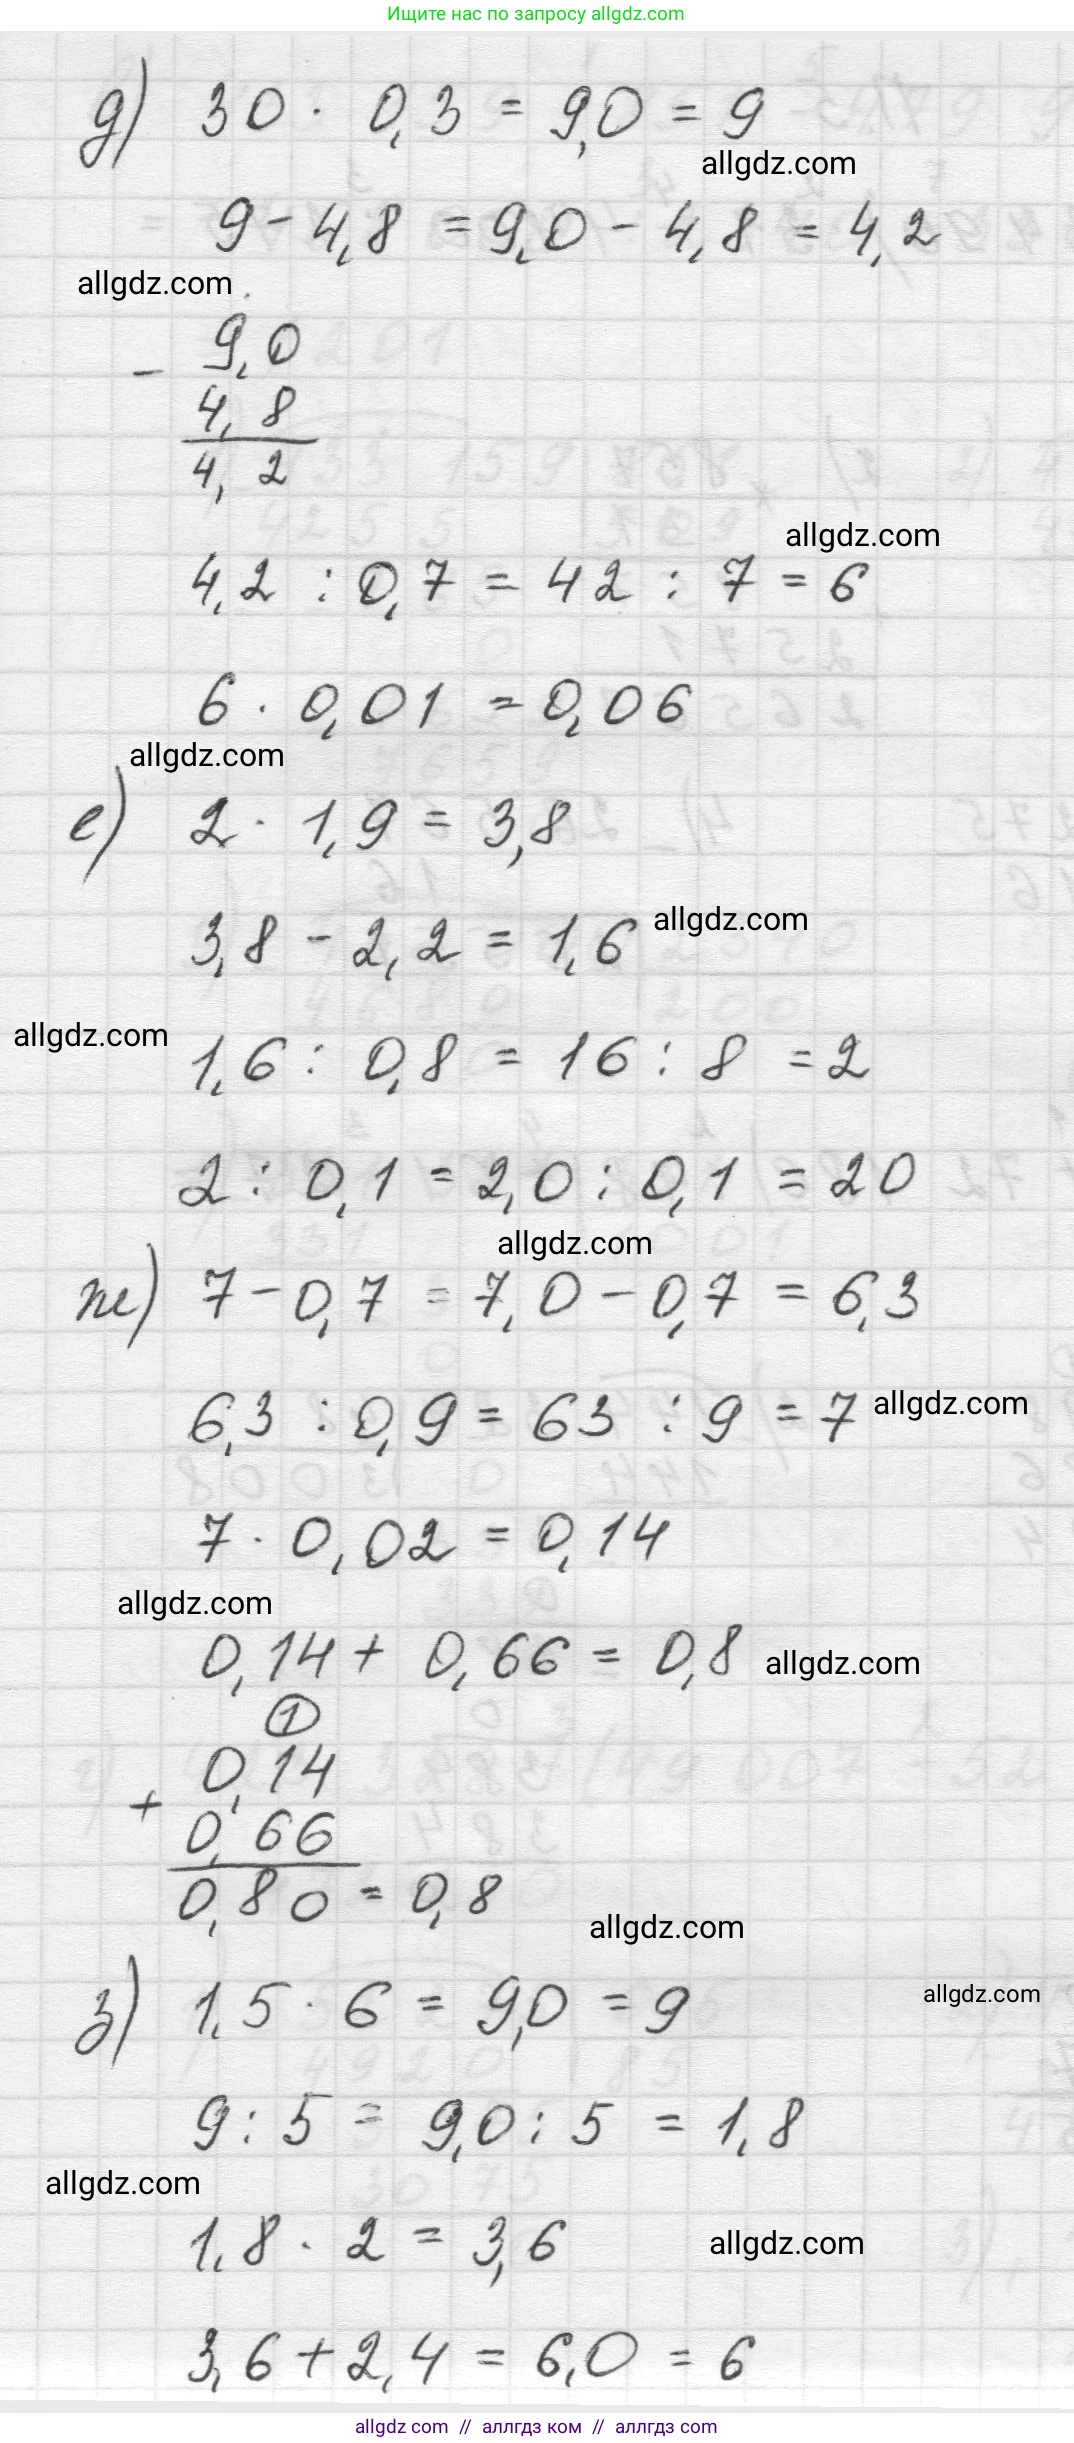 Ищите нас по запросу allgdz.com
д) 30 · 0,3 = 9,0 = 9
allgdz.com
9 - 4,8 = 9,0 - 4,8 = 4,2
allgdz.com
9,0
-
4,8
4,2
allgdz.com
4,2 : 0,7 = 42 : 7 = 6
6 · 0,01 = 0,06
allgdz.com
е) 2 · 1,9 = 3,8
3,8 - 2,2 = 1,6 allgdz.com
allgdz.com
1,6 : 0,8 = 16 : 8 = 2
2 : 0,1 = 2,0 : 0,1 = 20
allgdz.com
ж) 7 - 0,7 = 7,0 - 0,7 = 6,3
6,3 : 0,9 = 63 : 9 = 7 allgdz.com
7 · 0,02 = 0,14
allgdz.com
0,14 + 0,66 = 0,8 allgdz.com
1
0,14
+
0,66
0,80 = 0,8
allgdz.com
з) 1,5 · 6 = 9,0 = 9 allgdz.com
9 : 5 = 9,0 : 5 = 1,8
allgdz.com
1,8 · 2 = 3,6 allgdz.com
3,6 + 2,4 = 6,0 = 6
allgdz com // аллгдз ком // аллгдз com